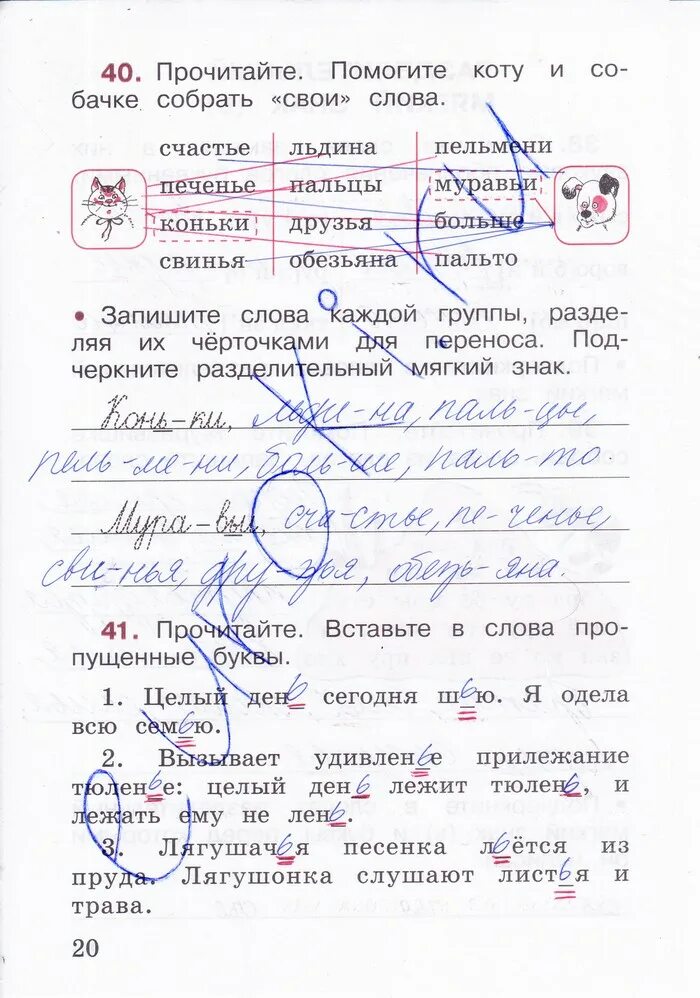 40. Прочитайте. Помогите коту и со-
бачке собрать «свои» слова.
счастье льдина пельмени
печенье пальцы муравьи
коньки друзья больше
свинья обезьяна пальто
• Запишите слова каждой группы, разде-
ляя их чёрточками для переноса. Под-
черкните разделительный мягкий знак.
Конь-ки, льди-на, паль-цы,
пель-ме-ни, боль-ше, паль-то
Мура-вьи, сча-стье, пе-ченье,
сви-нья, дру-зья, обезь-яна.
41. Прочитайте. Вставьте в слова про-
пущенные буквы.
1. Целый день сегодня шью. Я одела
всю семью.
2. Вызывает удивленье прилежание
тюленье: целый день лежит тюлень, и
лежать ему не лень.
3. Лягушачья песенка льётся из
пруда. Лягушонка слушают листья и
трава.
20